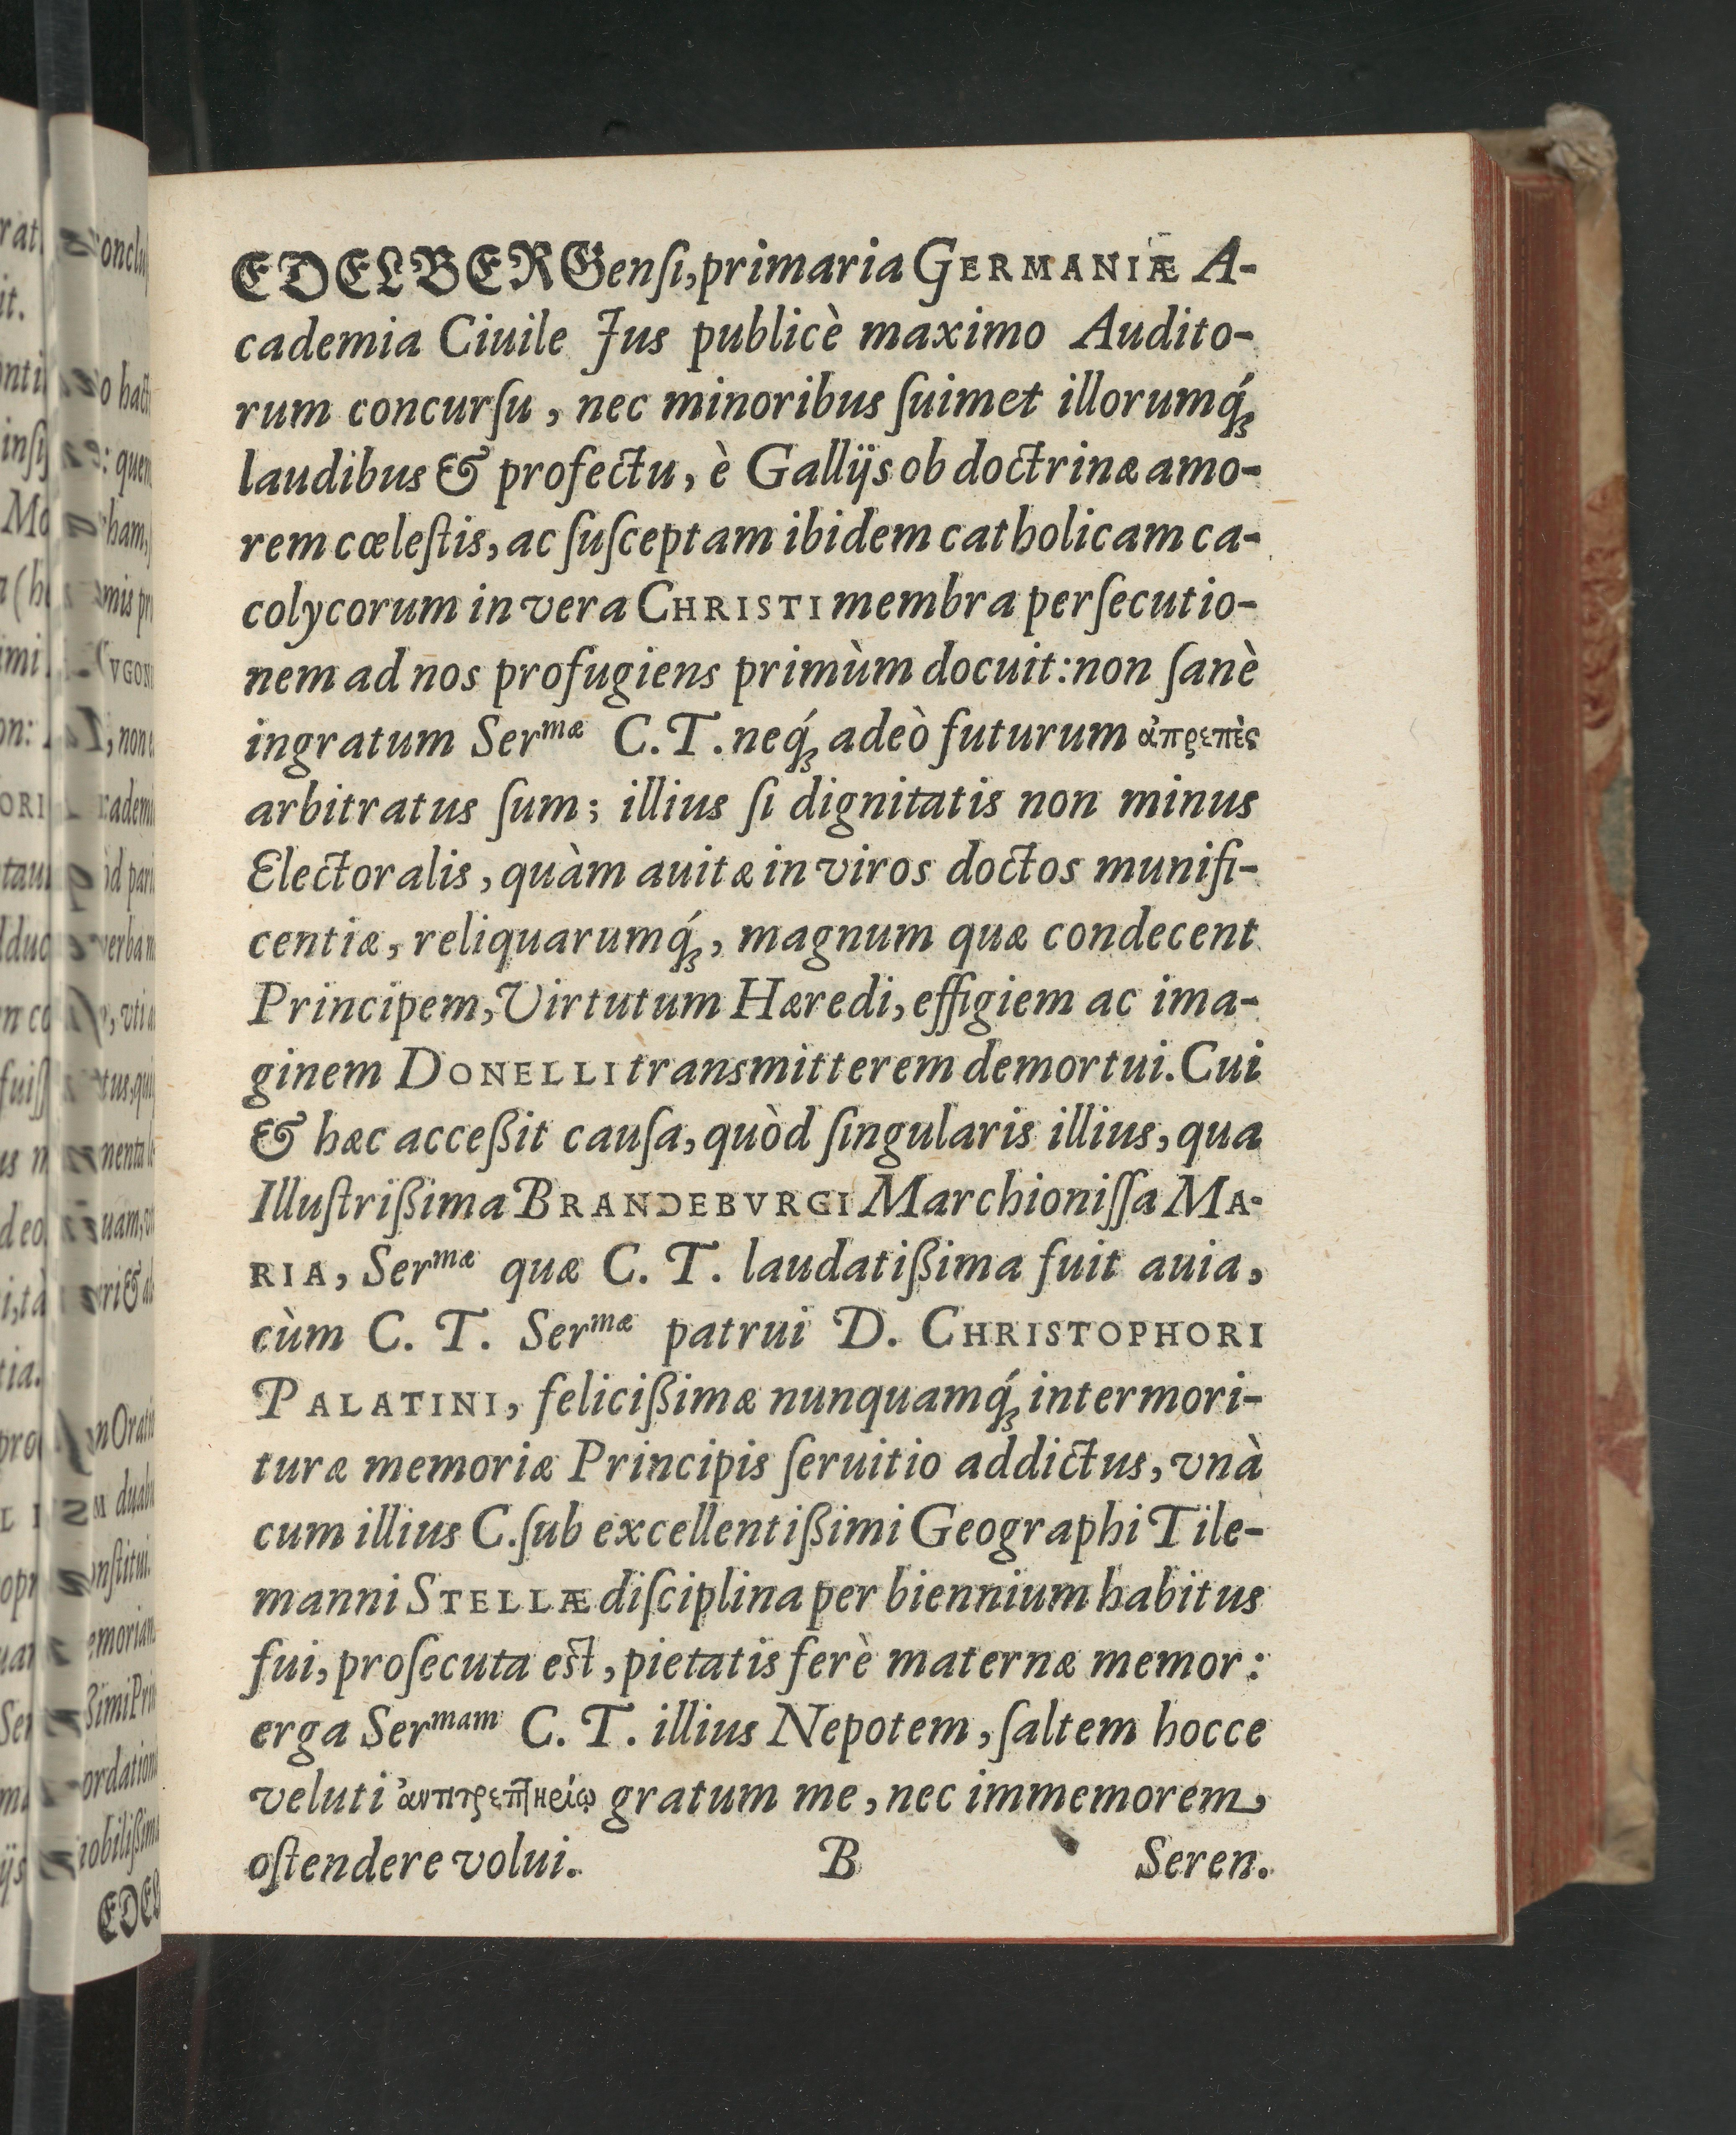 EDELBERGenſi, primaria GERMANIÆ A-
cademia Ciuile Jus publicè maximo Audito-
rum concurſu, nec minoribus ſuimet illorumq́;
laudibus & profectu, è Gallijs ob doctrinæ amo-
rem cœleſtis, ac ſuſceptam ibidem catholicam ca-
colycorum in vera CHRISTI membra perſecutio-
nem ad nos profugiens primùm docuit: non ſanè
ingratum Serᵐᵃᵉ C. T. neq́; adeò futurum ἀπρεπὲς
arbitratus ſum; illius ſi dignitatis non minus
Electoralis, quàm auitæ in viros doctos munifi-
centiæ, reliquarumq́;, magnum quæ condecent
Principem, Virtutum Hæredi, effigiem ac ima-
ginem DONELLI transmitterem demortui. Cui
& hæc acceßit cauſa, quòd ſingularis illius, qua
Illuſtrißima BRANDEBVRGI Marchioniſſa MA-
RIA, Serᵐᵃᵉ quæ C. T. laudatißima fuit auia,
cùm C. T. Serᵐᵃᵉ patrui D. CHRISTOPHORI
PALATINI, felicißimæ nunquamq́; intermori-
turæ memoriæ Principis ſeruitio addictus, vnà
cum illius C. ſub excellentißimi Geographi Tile-
manni STELLÆ diſciplina per biennium habitus
fui, proſecuta eſt, pietatis ferè maternæ memor:
erga Serᵐᵃᵐ C. T. illius Nepotem, ſaltem hocce
veluti gratum me, nec immemorem,
oſtendere volui. B Seren.